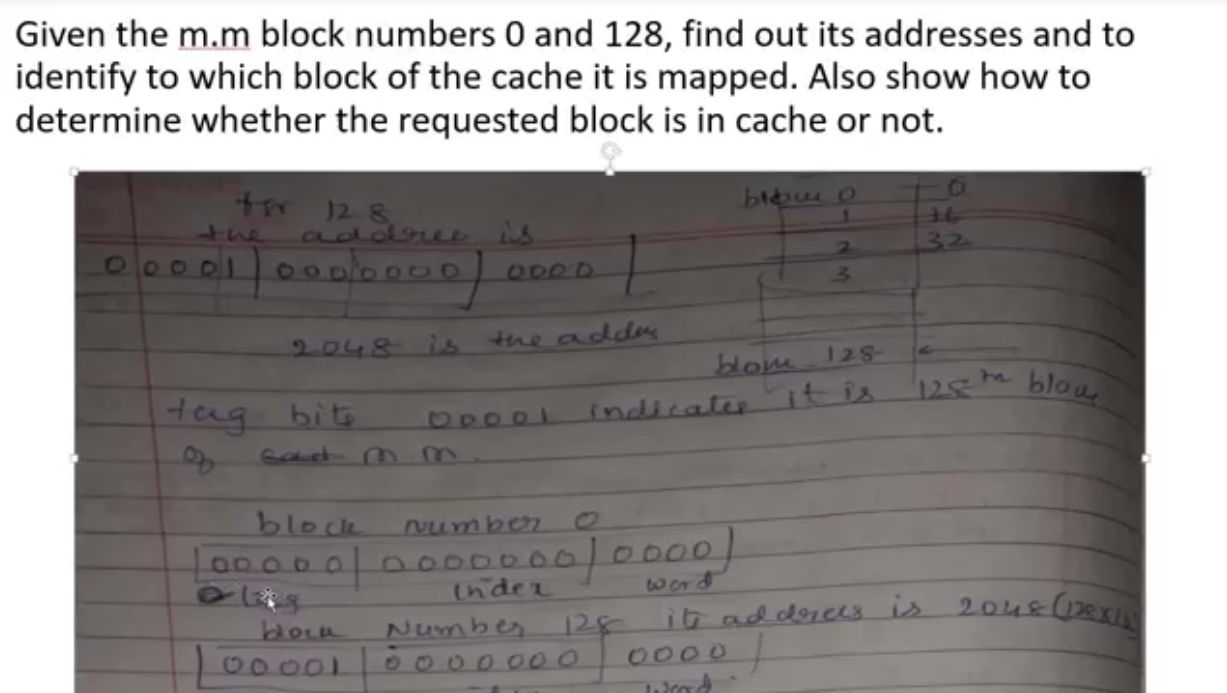 Given the m.m block numbers 0 and 128, find out its addresses and to
identify to which block of the cache it is mapped. Also show how to
determine whether the requested block is in cache or not.
for 128
the addree is
00001 0000000 0000
0 0
1 16
2 32
3
2048 is the addres
128
tag bits 00001 indicates it is 128th
of m m.
block number 0
00000 0000000 0000
tag index word
block Number 128 its address is 2048 (128x16
00001 0000000 0000
word